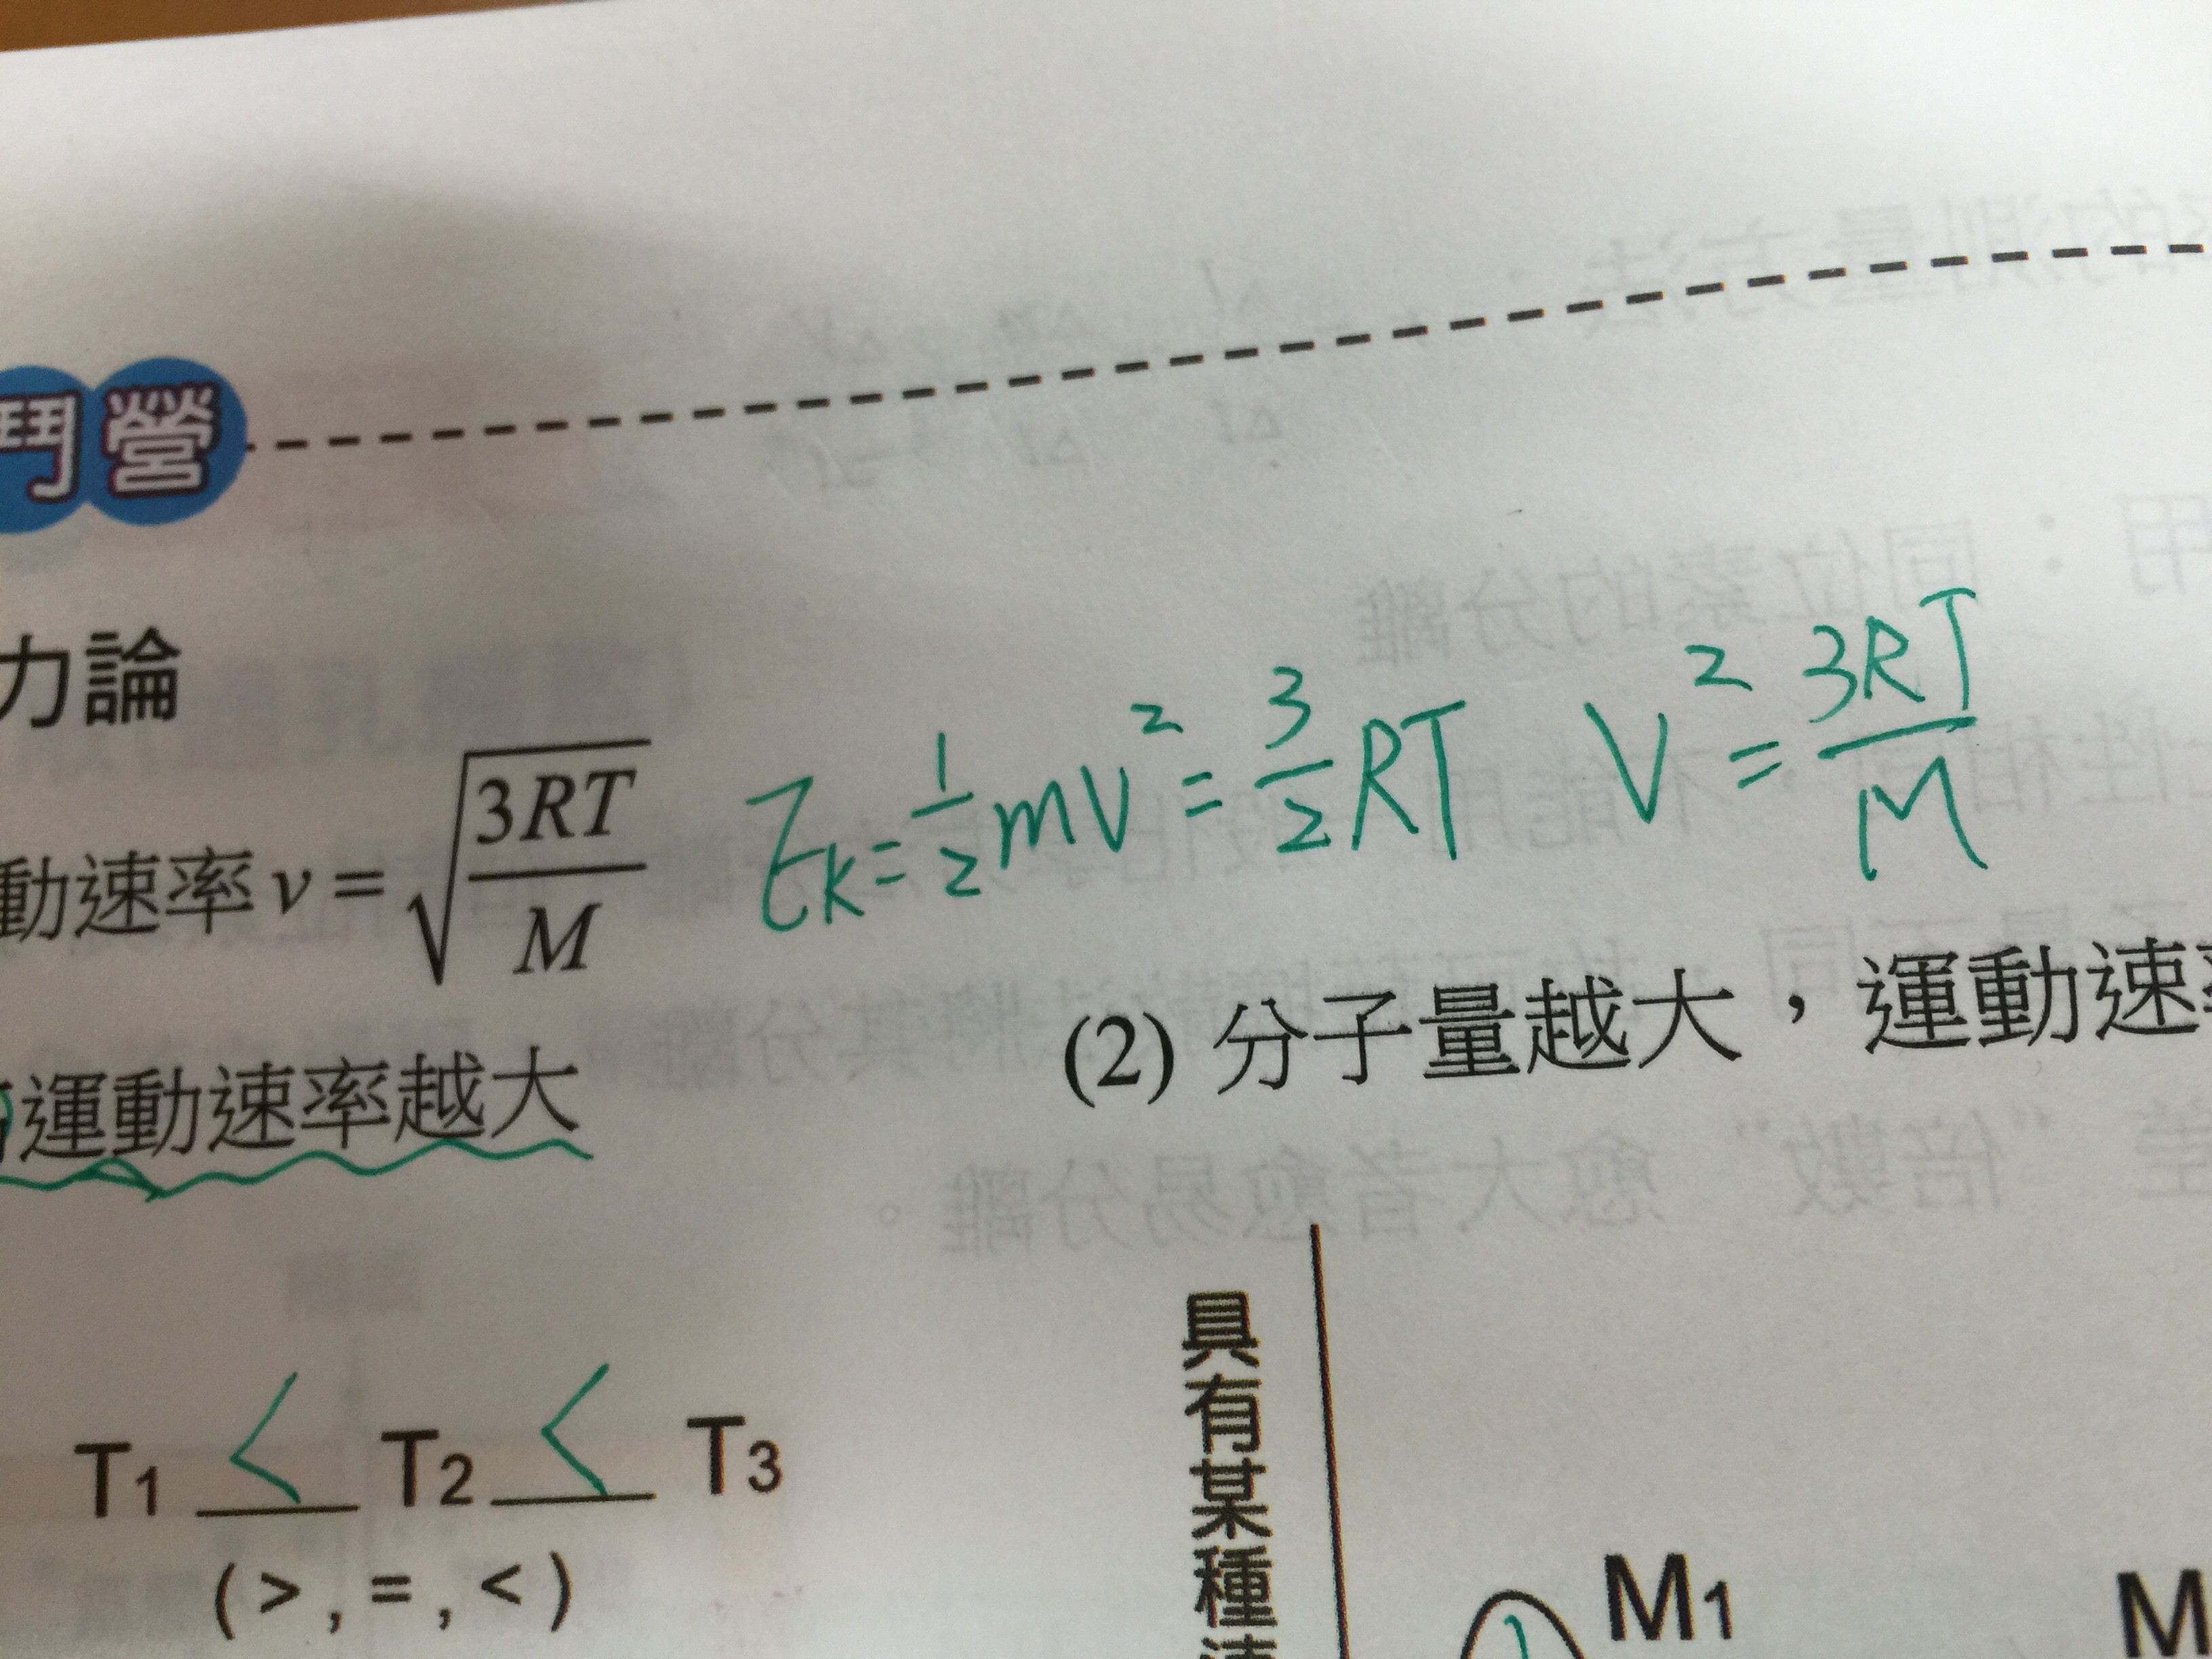 鬥營
力論
動速率 v = √(3RT/M) Ek = 1/2 mv² = 3/2 RT V² = 3RT/M
運動速率越大 (2) 分子量越大，運動速
T1 < T2 < T3
( > , = , < )
具有某種
M1 M